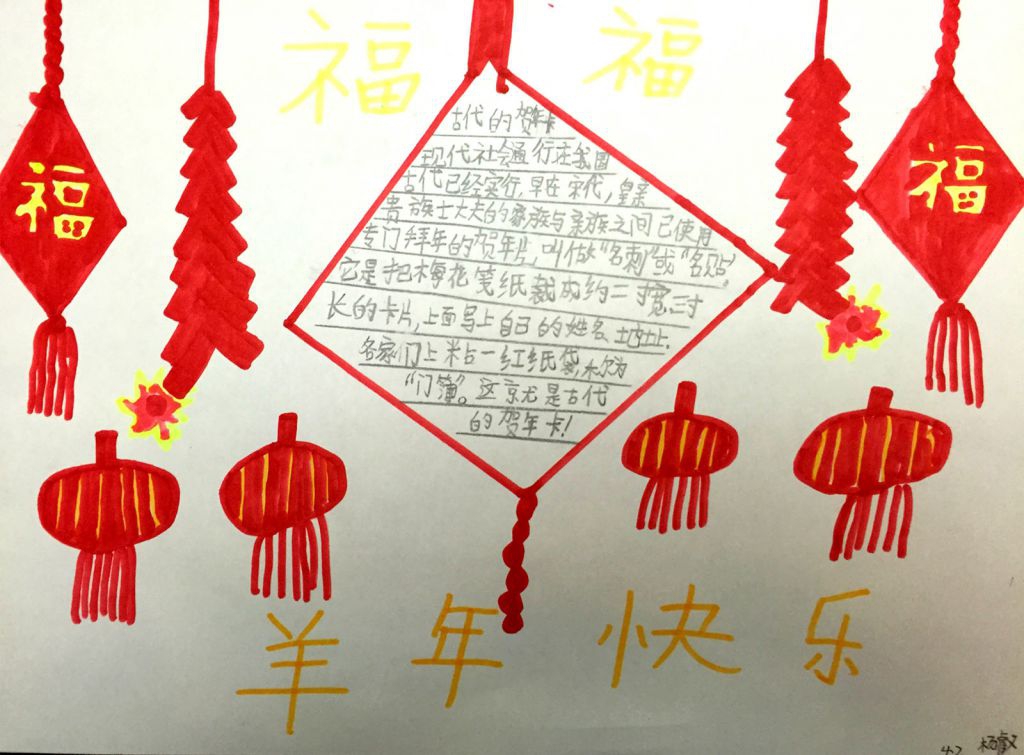 福 福
福
福
古代的贺年卡
现代社会通行在我国
古代已经实行,早在宋代,皇亲
贵族士大夫的家族与亲族之间已使用
专门拜年的贺年片,叫做“名刺”或“名贴”。
它是把梅花笺纸裁成约二寸宽,三寸
长的卡片,上面写上自己的姓名、地址.
各家门上粘一红纸袋,称为
“门簿”。这就是古代
的贺年卡!
羊年快乐